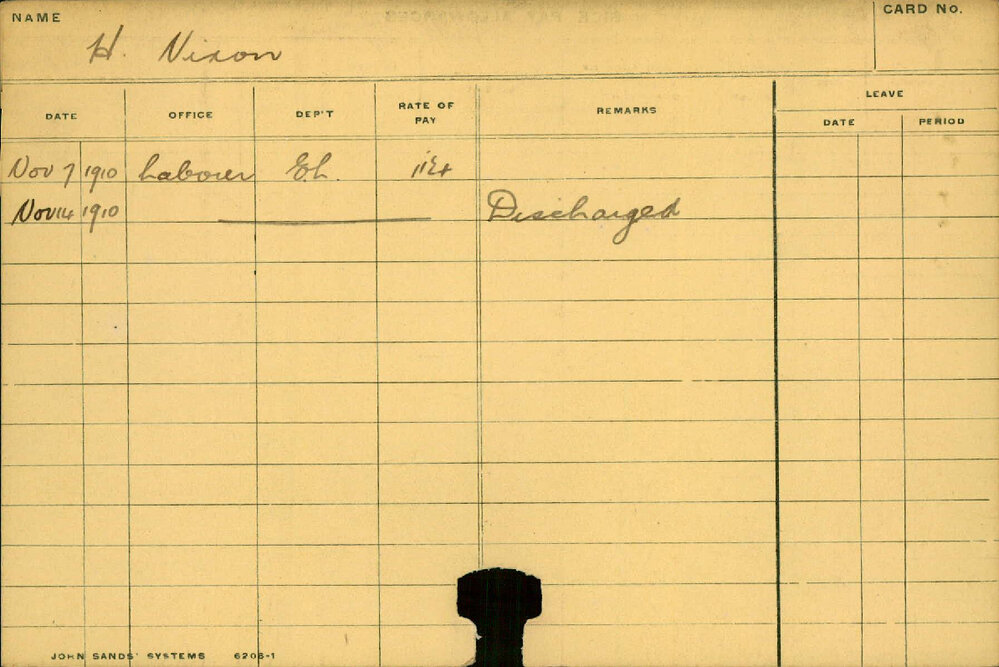 NAME
CARD NO.
H. Nixon
DATE OFFICE DEP'T RATE OF PAY REMARKS LEAVE
DATE PERIOD
Nov 7 1910 Labourer E.L.
Nov 14 1910 Discharged
JOHN SANDS' SYSTEMS 6206-1